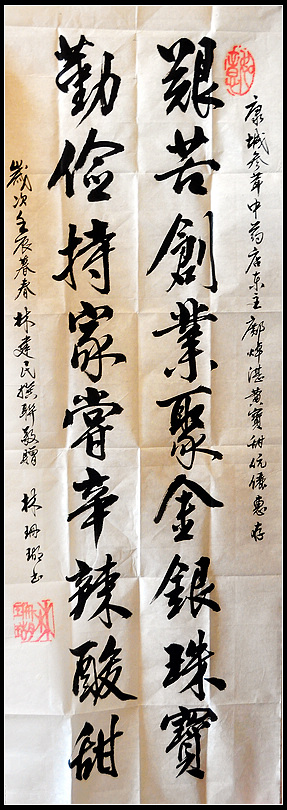 康城參茸中药店东主鄺焯湛黄寶甜伉儷惠存
艱苦創業聚金銀珠寶
勤儉持家嘗辛辣酸甜
歲次壬辰暮春林建民撰聯敬贈
林珊瑚书